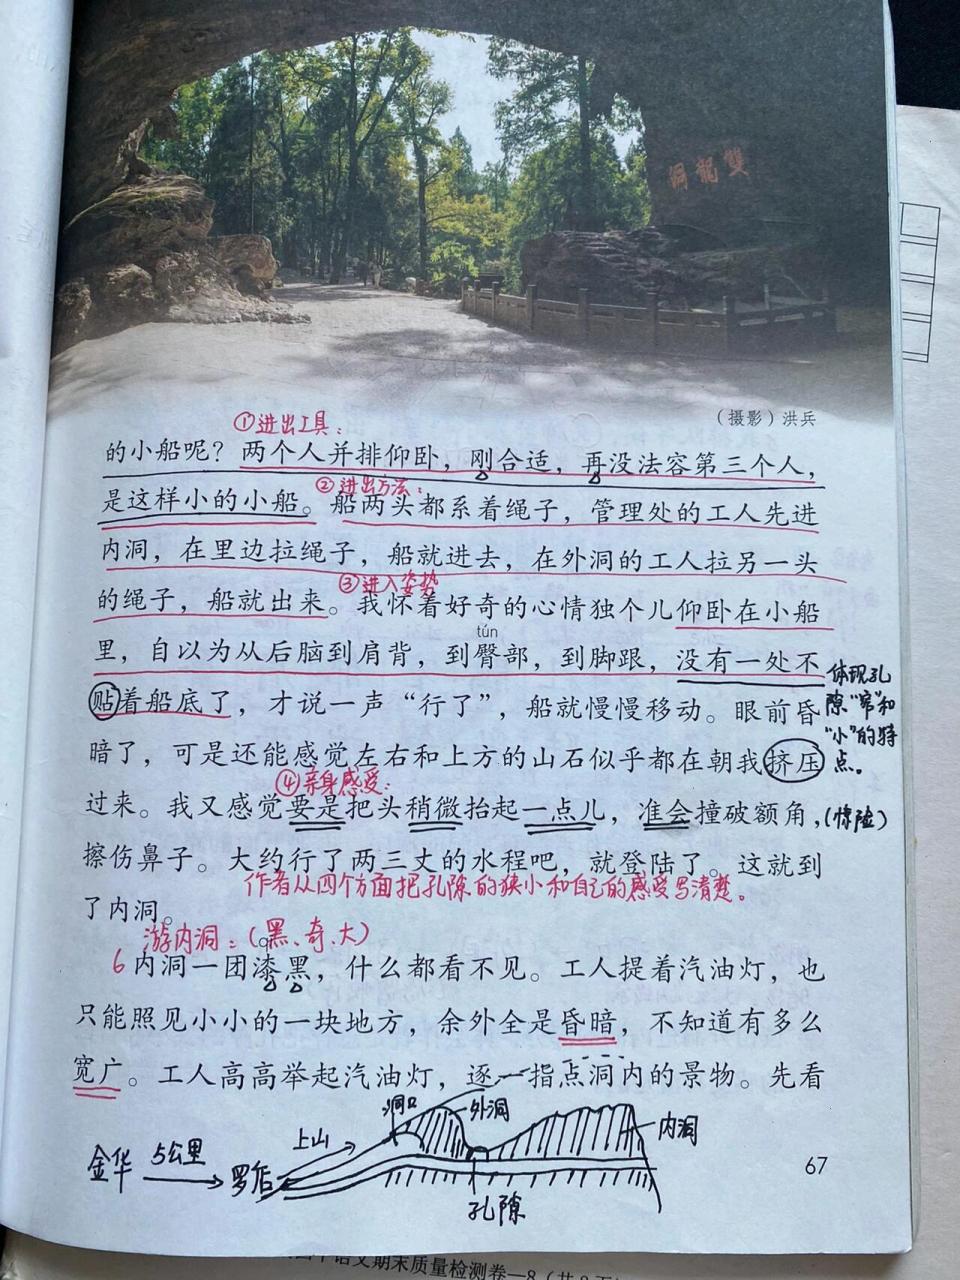 雙龍洞
（摄影）洪兵
①进出工具：
的小船呢？两个人并排仰卧，刚合适，再没法容第三个人，
②进出方法：
是这样小的小船。船两头都系着绳子，管理处的工人先进
内洞，在里边拉绳子，船就进去，在外洞的工人拉另一头
③进入姿势
的绳子，船就出来。我怀着好奇的心情独个儿仰卧在小船
tún
里，自以为从后脑到肩背，到臀部，到脚跟，没有一处不
贴着船底了，才说一声“行了”，船就慢慢移动。眼前昏
体现孔
隙“窄”和
“小”的特
点。
暗了，可是还能感觉左右和上方的山石似乎都在朝我挤压
④亲身感受：
过来。我又感觉要是把头稍微抬起一点儿，准会撞破额角，
（惊险）
擦伤鼻子。大约行了两三丈的水程吧，就登陆了。这就到
作者从四个方面把孔隙的狭小和自己的感受写清楚。
了内洞。
游内洞：（黑、奇、大）
qī
6内洞一团漆黑，什么都看不见。工人提着汽油灯，也
只能照见小小的一块地方，余外全是昏暗，不知道有多么
宽广。工人高高举起汽油灯，逐一指点洞内的景物。先看
洞口
外洞
内洞
上山
金华
5公里
罗店
孔隙
67
语文期末质量检测卷—8（共8页）